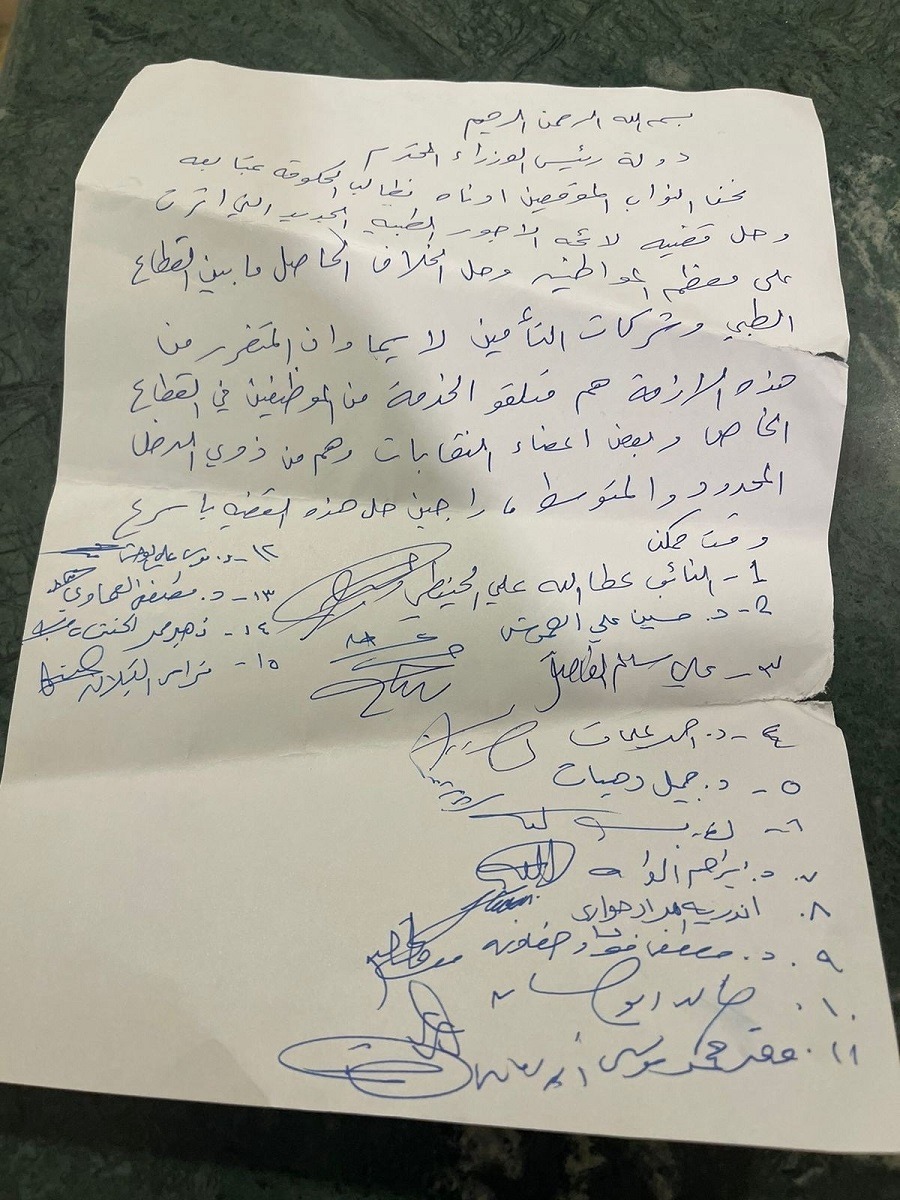 بسم الله الرحمن الرحيم
دولة رئيس الوزراء المحترم
نحن النواب الموقعين ادناه نطالب الحكومة بمتابعه
وحل قضيه لائحه الاجور الطبيه الجديد التي اثرت
على معظم المواطنيه وحل الخلاف الحاصل ما بين القطاع
الطبي وشركات التأمين لا سيما وان المتضرر من
هذه الازمة هم متلقو الخدمة من الموظفين في القطاع
الخاص وبعض اعضاء النقابات وهم من ذوي الدخل
المحدود والمتوسط راجين حل هذه القضيه باسرع
وقت ممكن
1 - النائب عطا الله علي الحنيطي
2 - د. حسين علي العموش
٣ - علي سليم
٤ - د. احمد عليمات
٥ - د. جميل دهيسات
٦ -
٧. د. ابراهيم
٨. اندريه مراد حواري
٩. د. مصطفى فؤاد خصاونه
١٠. خالد ابو
١١. محمد موسى
١٢ - د. علي
١٣ - د. مصطفى العماوي
١٤ - زهير محمد
١٥ - فراس القبلان